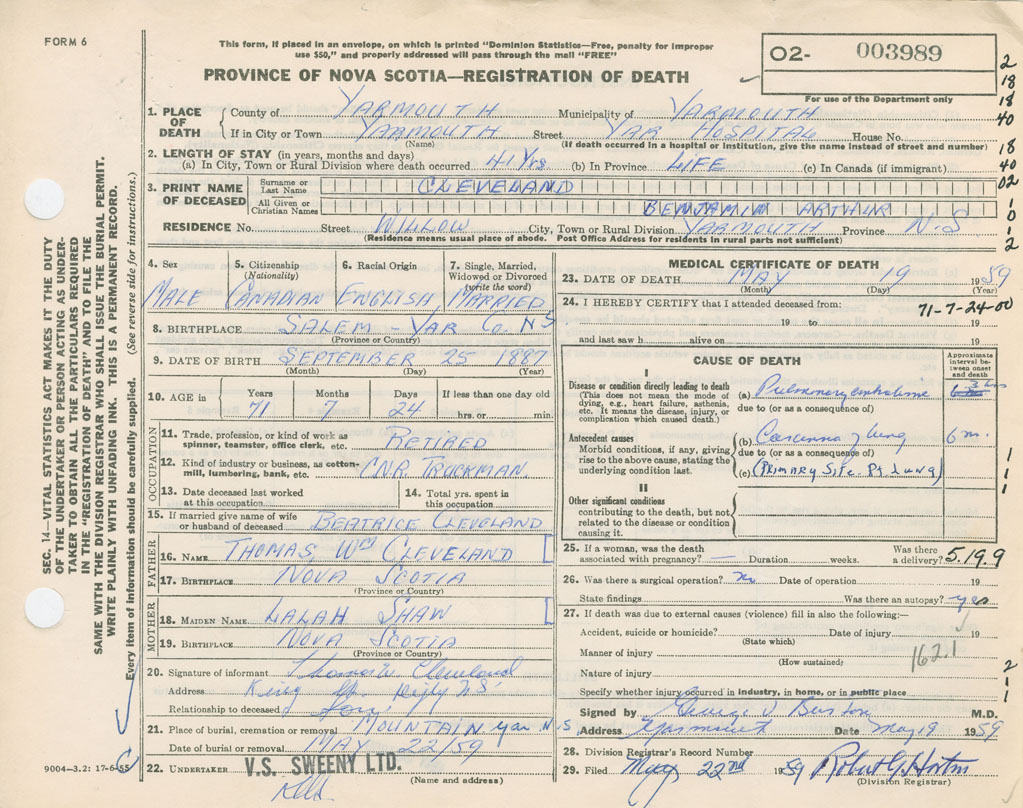 FORM 6
This form, if placed in an envelope, on which is printed "Dominion Statistics—Free, penalty for improper
use $50," and properly addressed will pass through the mail "FREE"
PROVINCE OF NOVA SCOTIA—REGISTRATION OF DEATH
O2- 003989
For use of the Department only
2
18
18
40
18
40
02
1
0
1
2
SEC. 14—VITAL STATISTICS ACT MAKES IT THE DUTY
OF THE UNDERTAKER OR PERSON ACTING AS UNDER-
TAKER TO OBTAIN ALL THE PARTICULARS REQUIRED
IN THE "REGISTRATION OF DEATH" AND TO FILE THE
SAME WITH THE DIVISION REGISTRAR WHO SHALL ISSUE THE BURIAL PERMIT.
WRITE PLAINLY WITH UNFADING INK. THIS IS A PERMANENT RECORD.
Every item of information should be carefully supplied. (See reverse side for instructions.)
1. PLACE OF DEATH County of YARMOUTH Municipality of YARMOUTH
If in City or Town YARMOUTH Street YAR HOSPITAL House No.
(Name) (If death occurred in a hospital or institution, give the name instead of street and number)
2. LENGTH OF STAY (in years, months and days)
(a) In City, Town or Rural Division where death occurred 41 Yrs (b) In Province LIFE (c) In Canada (if immigrant)
3. PRINT NAME OF DECEASED Surname or Last Name CLEVELAND
All Given or Christian Names BENJAMIN ARTHUR
RESIDENCE No. Street WILLOW City, Town or Rural Division YARMOUTH Province N.S
(Residence means usual place of abode. Post Office Address for residents in rural parts not sufficient)
4. Sex 5. Citizenship (Nationality) 6. Racial Origin 7. Single, Married, Widowed or Divorced (write the word)
MALE CANADIAN ENGLISH MARRIED
8. BIRTHPLACE SALEM - YAR Co. NS
(Province or Country)
9. DATE OF BIRTH SEPTEMBER 25 1887
(Month) (Day) (Year)
10. AGE in Years Months Days If less than one day old
71 7 24 hrs. or min.
OCCUPATION
11. Trade, profession, or kind of work as
spinner, teamster, office clerk, etc. RETIRED
12. Kind of industry or business, as cotton-
mill, lumbering, bank, etc. CNR. TRUCKMAN
13. Date deceased last worked
at this occupation
14. Total yrs. spent in
this occupation
15. If married give name of wife
or husband of deceased BEATRICE CLEVELAND
FATHER
16. NAME THOMAS Wm CLEVELAND
17. BIRTHPLACE NOVA SCOTIA
(Province or Country)
MOTHER
18. MAIDEN NAME LALAH SHAW
19. BIRTHPLACE NOVA SCOTIA
(Province or Country)
20. Signature of informant Thomas W Cleveland
Address King St. Digby NS
Relationship to deceased Son
21. Place of burial, cremation or removal MOUNTAIN Yar N.S
Date of burial or removal MAY 22/59
22. UNDERTAKER V.S. SWEENY LTD.
(Name and address)
9004-3.2: 17-6-55
MEDICAL CERTIFICATE OF DEATH
23. DATE OF DEATH MAY 19 1959
(Month) (Day) (Year)
24. I HEREBY CERTIFY that I attended deceased from: 71-7-24-00
19 to 19
and last saw h alive on 19
CAUSE OF DEATH
Approximate interval between onset and death
I
Disease or condition directly leading to death
(This does not mean the mode of
dying, e.g., heart failure, asthenia,
etc. It means the disease, injury, or
complication which caused death.)
(a) Pulmonary embolism 3 hrs
due to (or as a consequence of)
Antecedent causes
Morbid conditions, if any, giving
rise to the above cause, stating the
underlying condition last.
(b) Carcinoma of lung 6 m.
due to (or as a consequence of)
(c) (Primary Site Rt. Lung)
1
1
1
II
Other significant conditions
contributing to the death, but not
related to the disease or condition
causing it.
25. If a woman, was the death
associated with pregnancy? — Duration weeks. Was there
a delivery? 5.19.9
26. Was there a surgical operation? no Date of operation 19
State findings Was there an autopsy? yes
27. If death was due to external causes (violence) fill in also the following:—
Accident, suicide or homicide? Date of injury 19
(State which)
Manner of injury 162.1
(How sustained)
Nature of injury
2
1
1
Specify whether injury occurred in industry, in home, or in public place
Signed by George V Burton M.D.
Address Yarmouth Date May 19 1959
28. Division Registrar's Record Number
29. Filed May 22nd 1959 Robert G Horton
(Division Registrar)